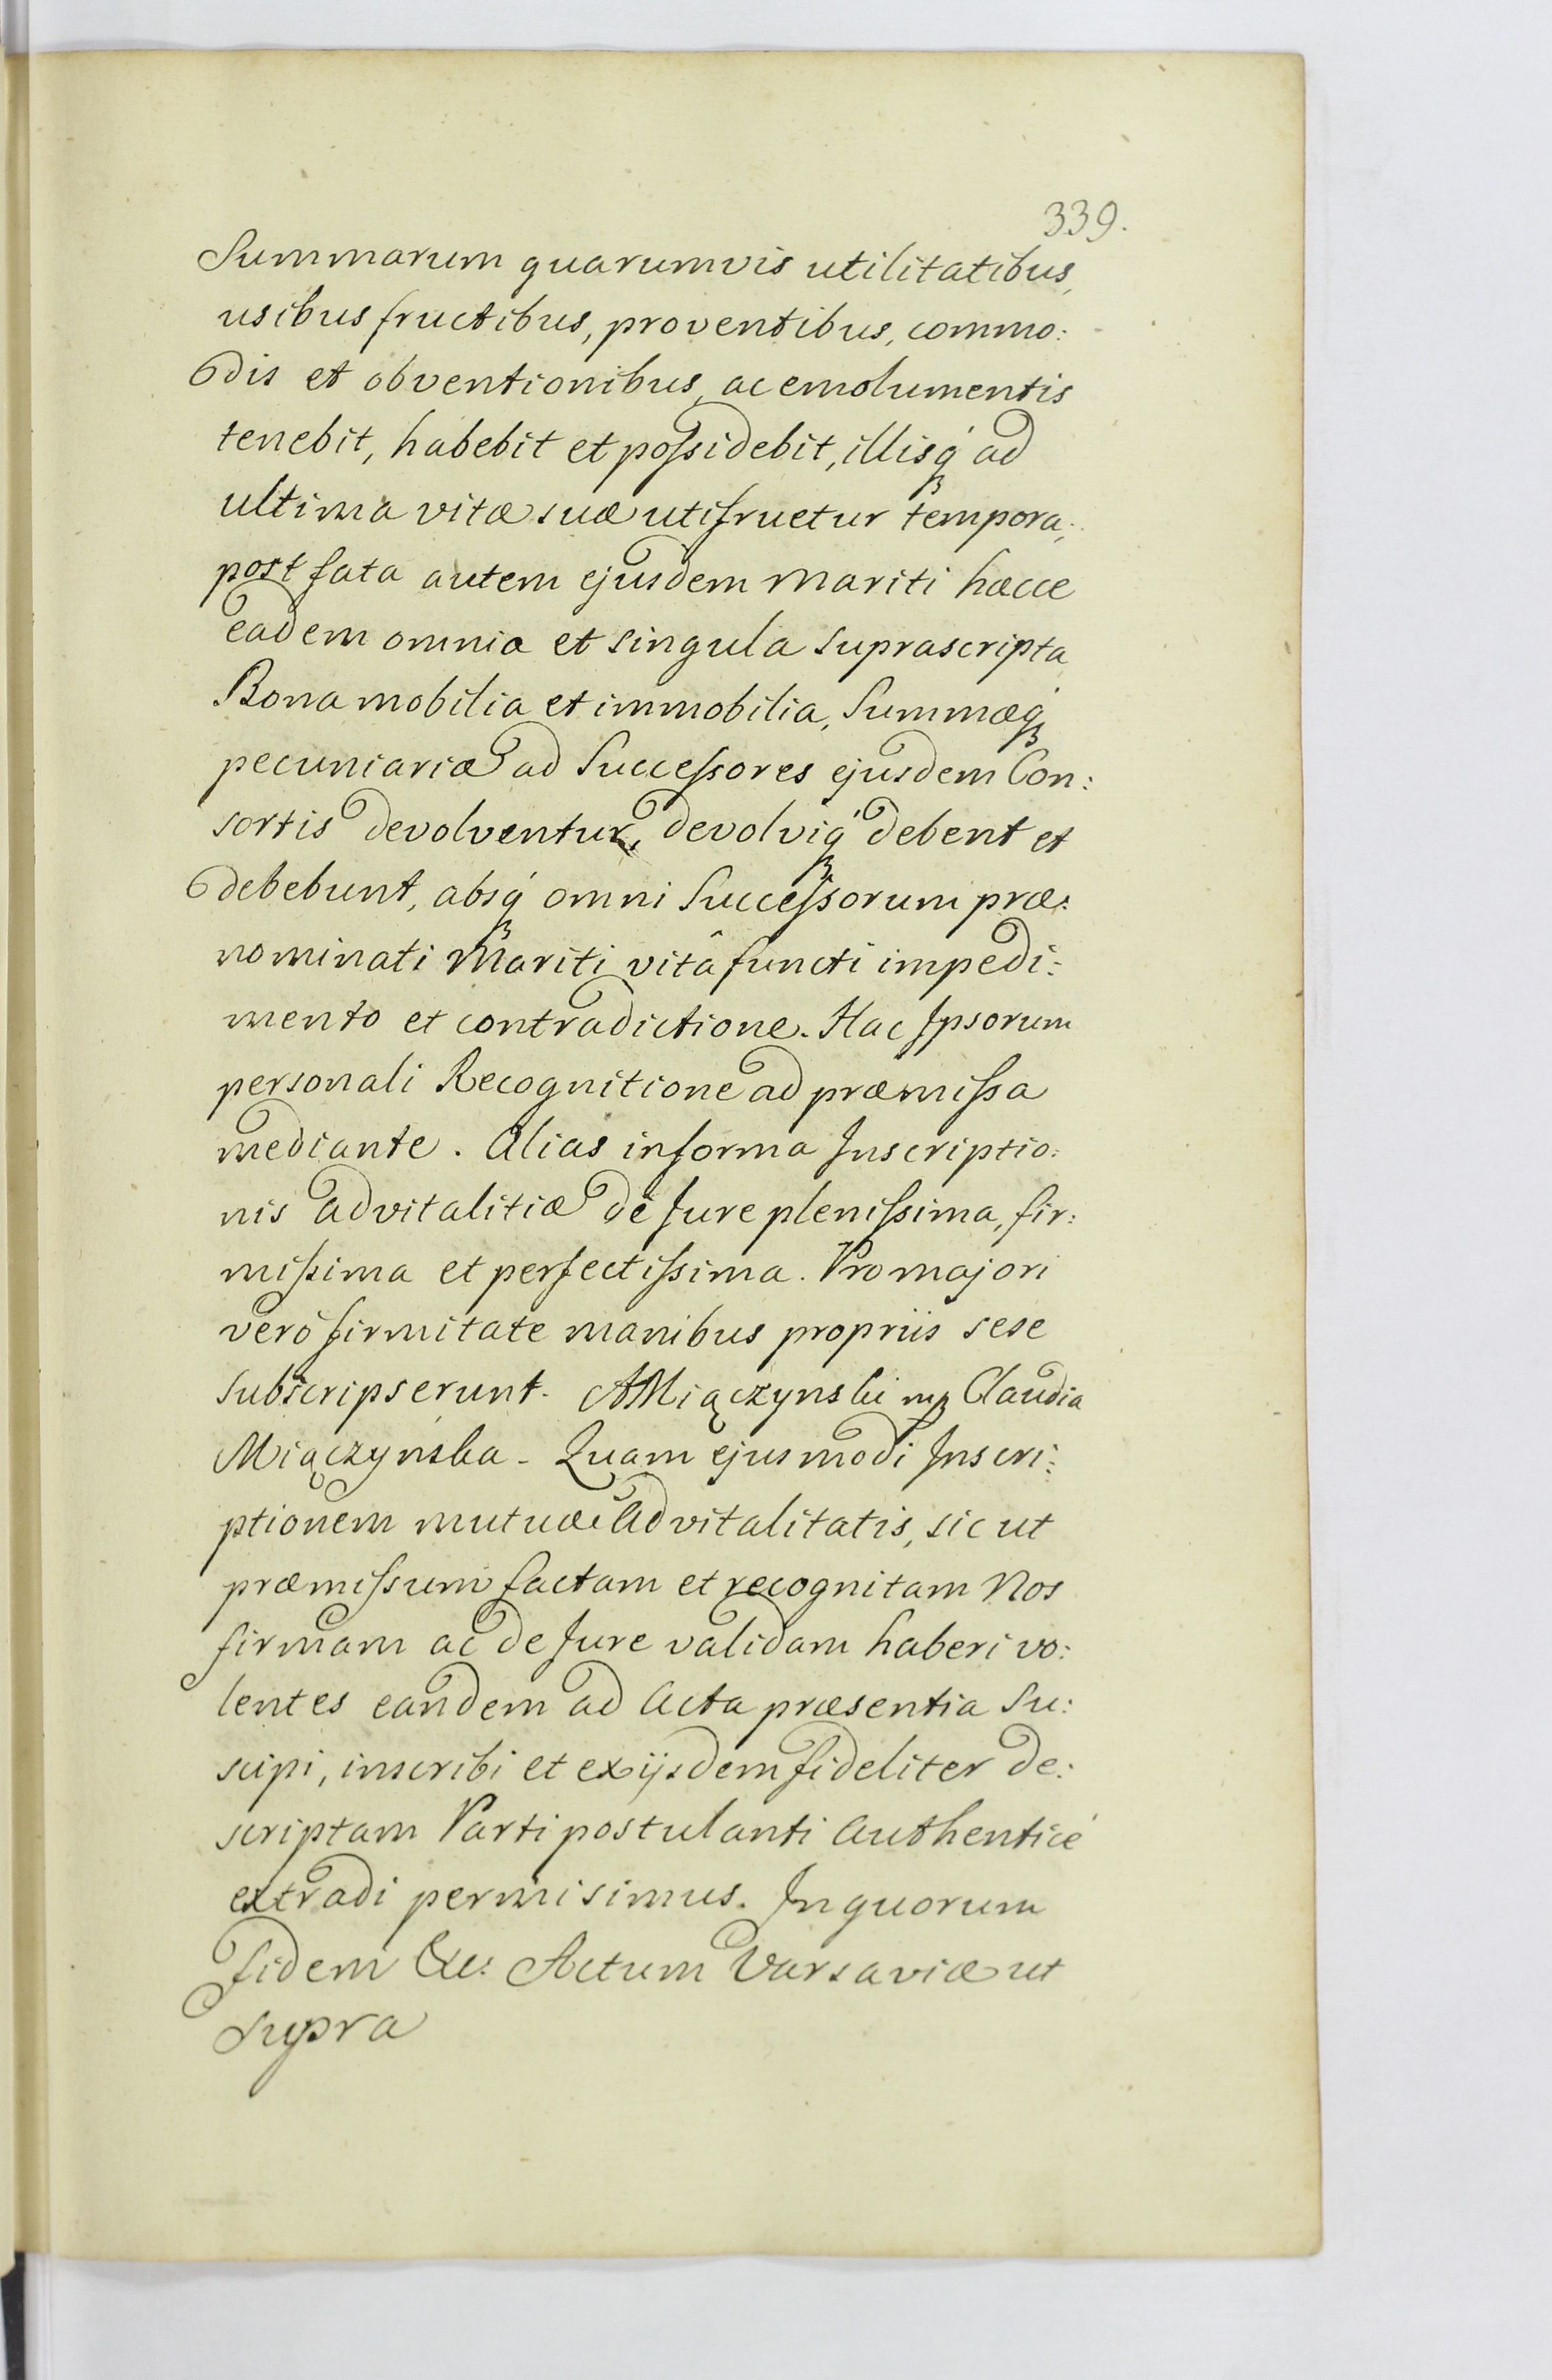 339.
Summarum quarumvis utilitatibus,
usibus fructibus, proventibus, commo:
dis et obventionibus, ac emolumentis
tenebit, habebit et poſsidebit, illisq́ꝫ ad
ultima vitæ suæ utifruetur tempora,
post fata autem ejusdem Mariti hæcce
eadem omnia et singula suprascripta
Bona mobilia et immobilia, Summæq́ꝫ
pecuniariæ ad Succeſsores ejusdem Con:
sortis devolventur, devolviq́ꝫ debent et
debebunt, absq́ꝫ omni Succeſsorum præ:
nominati Mariti vitâ functi impedi:
mento et contradictione. Hac Ipsorum
personali Recognitione ad præmiſsa
mediante. Alias in forma Inscriptio:
nis advitalitiæ de Jure pleniſsima, fir:
miſsima et perfectiſsima. Pro majori
verò firmitate manibus propriis sese
subscripserunt. AMiączynski mꝑ Claudia
Miączyńska - Quam ejusmodi Inscri:
ptionem mutuæ Advitalitatis, sic ut
præmiſsum factam et recognitam Nos
firmam ac de Jure validam haberi vo:
lentes eandem ad Acta præsentia Su:
scipi, inscribi et ex ijsdem fideliter de:
scriptam Parti postulanti authenticé
extradi permisimus. In quorum
fidem &c: Actum Varsaviæ ut
supra